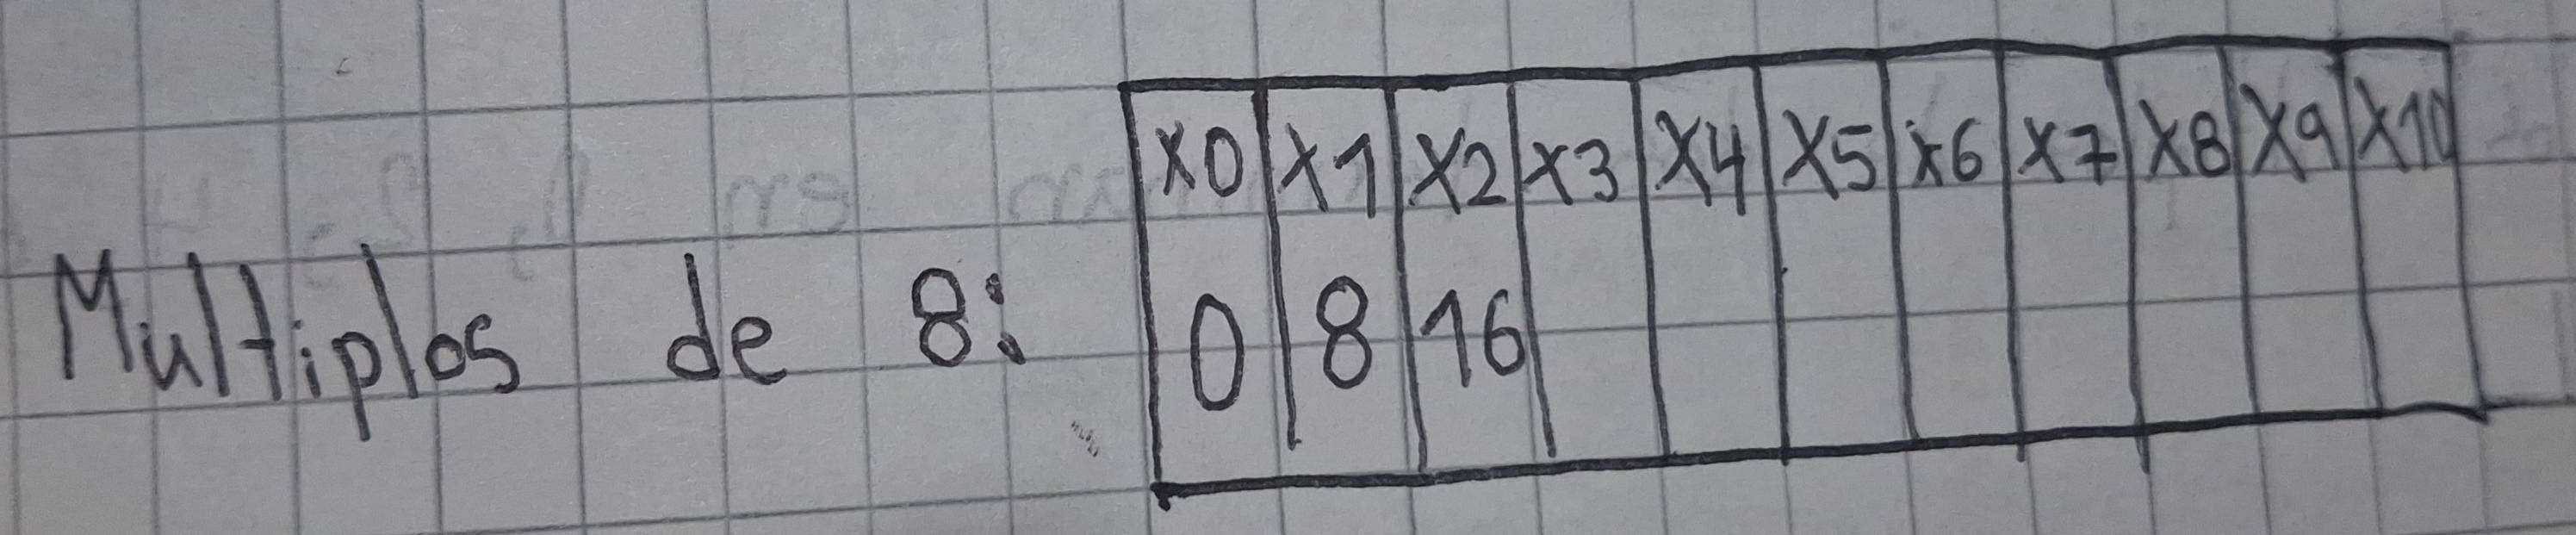 x0 x1 x2 x3 x4 x5 x6 x7 x8 x9 x10
Multiplos de 8: 0 8 16